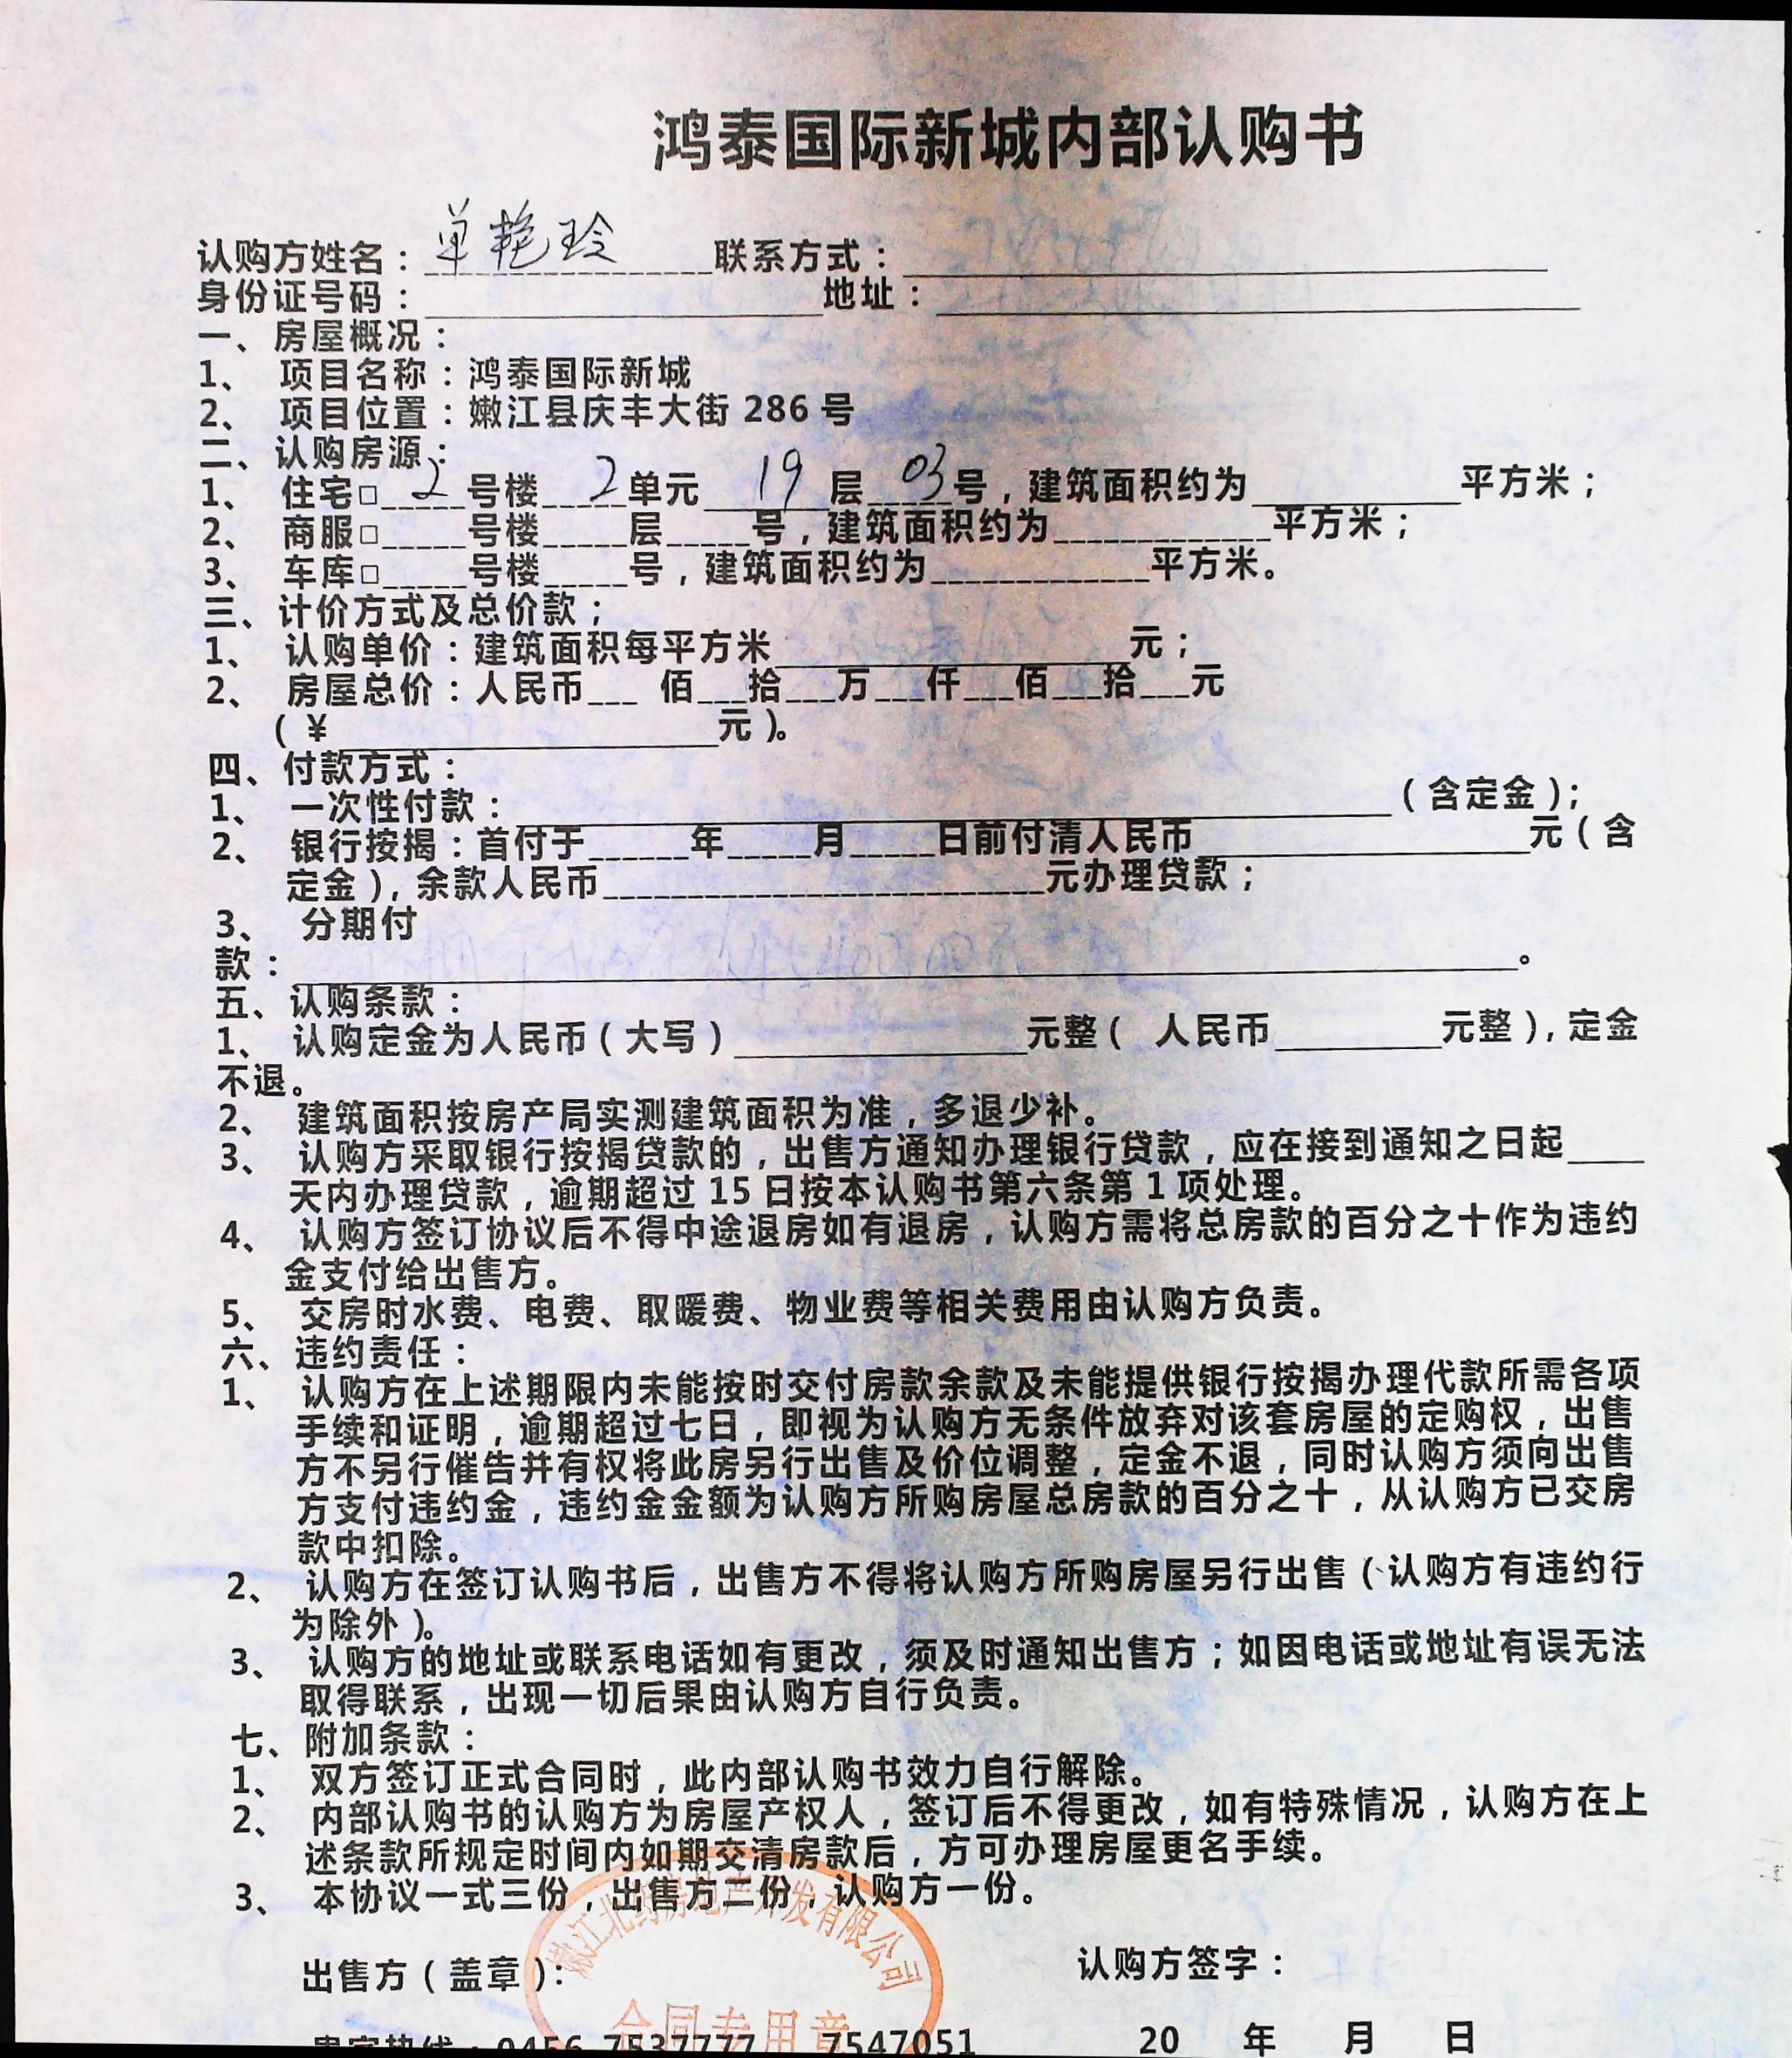 鸿泰国际新城内部认购书
认购方姓名：单艳玲 联系方式：
身份证号码： 地址：
一、房屋概况：
1、 项目名称：鸿泰国际新城
2、 项目位置：嫩江县庆丰大街 286 号
二、认购房源：
1、 住宅□ 2 号楼 2 单元 19 层 03 号，建筑面积约为 平方米；
2、 商服□_____号楼_____层_____号，建筑面积约为_____________平方米；
3、 车库□_____号楼_____号，建筑面积约为_____________平方米。
三、计价方式及总价款；
1、 认购单价：建筑面积每平方米 元；
2、 房屋总价：人民币___ 佰___拾___万___仟___佰___拾___元
（¥ 元）。
四、付款方式：
1、 一次性付款： （含定金）；
2、 银行按揭：首付于______年_____月_____日前付清人民币 元（含
定金），余款人民币__________________________元办理贷款；
3、 分期付
款： 。
五、认购条款：
1、 认购定金为人民币（大写） 元整（ 人民币 元整），定金
不退。
2、 建筑面积按房产局实测建筑面积为准，多退少补。
3、 认购方采取银行按揭贷款的，出售方通知办理银行贷款，应在接到通知之日起____
天内办理贷款，逾期超过 15 日按本认购书第六条第 1 项处理。
4、 认购方签订协议后不得中途退房如有退房，认购方需将总房款的百分之十作为违约
金支付给出售方。
5、 交房时水费、电费、取暖费、物业费等相关费用由认购方负责。
六、违约责任：
1、 认购方在上述期限内未能按时交付房款余款及未能提供银行按揭办理代款所需各项
手续和证明，逾期超过七日，即视为认购方无条件放弃对该套房屋的定购权，出售
方不另行催告并有权将此房另行出售及价位调整，定金不退，同时认购方须向出售
方支付违约金，违约金金额为认购方所购房屋总房款的百分之十，从认购方已交房
款中扣除。
2、 认购方在签订认购书后，出售方不得将认购方所购房屋另行出售（认购方有违约行
为除外）。
3、 认购方的地址或联系电话如有更改，须及时通知出售方；如因电话或地址有误无法
取得联系，出现一切后果由认购方自行负责。
七、附加条款：
1、 双方签订正式合同时，此内部认购书效力自行解除。
2、 内部认购书的认购方为房屋产权人，签订后不得更改，如有特殊情况，认购方在上
述条款所规定时间内如期交清房款后，方可办理房屋更名手续。
3、 本协议一式三份，出售方二份，认购方一份。
嫩江北药房地产开发有限公司
出售方（盖章）： 认购方签字：
合同专用章
贵宾热线：0456-7537777 7547051 20 年 月 日